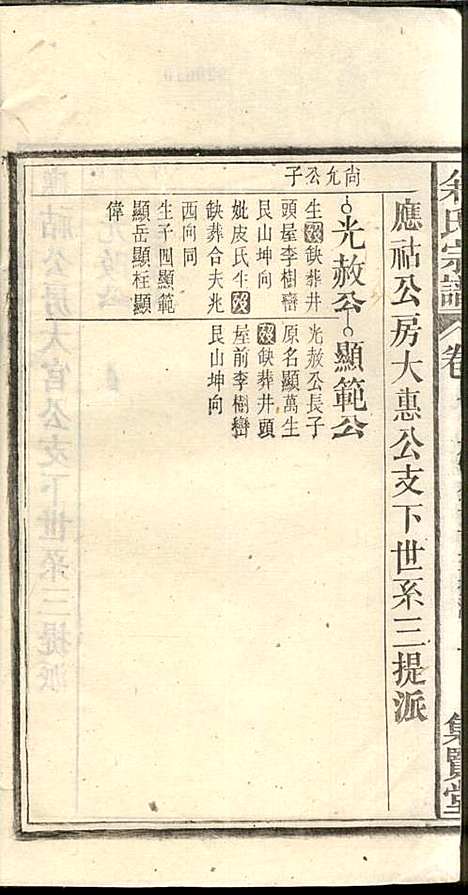 余氏宗譜 卷
集賢堂
應祜公房大惠公支下世系三提派
尚允公子
光赦公
生歿缺葬井
頭屋李樹巒
艮山坤向
妣庾氏生歿
缺葬合夫兆
酉向同
生子四顯範
顯岳顯枉顯
偉
顯範公
光赦公長子
原名顯萬生
歿缺葬井頭
屋前李樹巒
艮山坤向